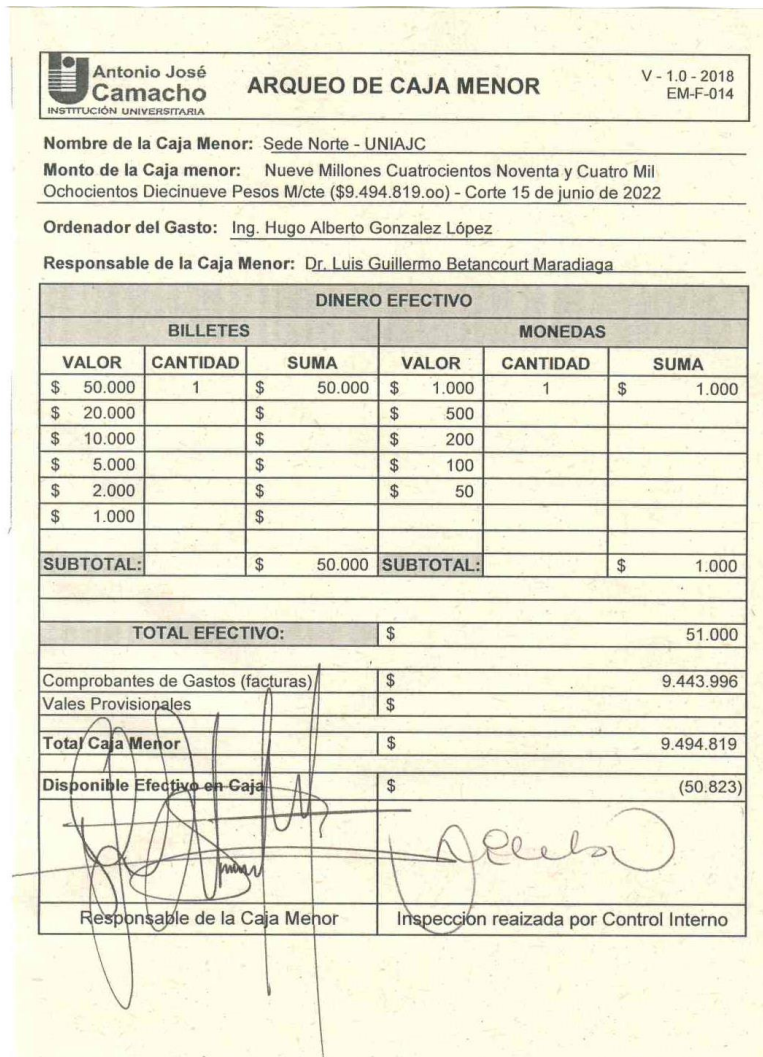 Antonio José
Camacho
INSTITUCIÓN UNIVERSITARIA
ARQUEO DE CAJA MENOR
V - 1.0 - 2018
EM-F-014
Nombre de la Caja Menor: Sede Norte - UNIAJC
Monto de la Caja menor: Nueve Millones Cuatrocientos Noventa y Cuatro Mil
Ochocientos Diecinueve Pesos M/cte ($9.494.819.oo) - Corte 15 de junio de 2022
Ordenador del Gasto: Ing. Hugo Alberto Gonzalez López
Responsable de la Caja Menor: Dr. Luis Guillermo Betancourt Maradiaga
DINERO EFECTIVO
BILLETES MONEDAS
VALOR CANTIDAD SUMA VALOR CANTIDAD SUMA
$ 50.000 1 $ 50.000 $ 1.000 1 $ 1.000
$ 20.000 $ $ 500
$ 10.000 $ $ 200
$ 5.000 $ $ 100
$ 2.000 $ $ 50
$ 1.000 $
SUBTOTAL: $ 50.000 SUBTOTAL: $ 1.000
TOTAL EFECTIVO: $ 51.000
Comprobantes de Gastos (facturas) $ 9.443.996
Vales Provisionales $
Total Caja Menor $ 9.494.819
Disponible Efectivo en Caja $ (50.823)
Responsable de la Caja Menor Inspeccion reaizada por Control Interno